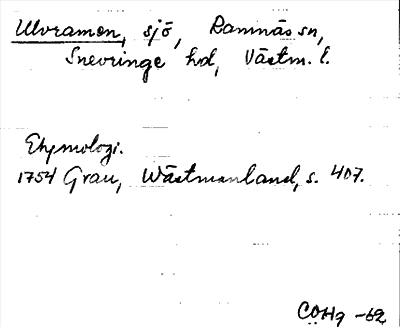 Ulvramen, sjö, Ramnäs sn,
Snevringe hd, Västm. l.
Etymologi.
1754 Grau, Wästmanland, s. 407.
COHg -62